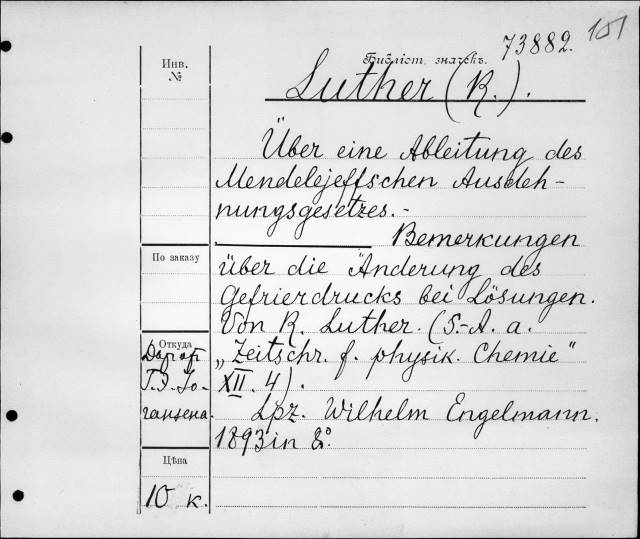 101
73882.
Библіот. значекъ.
Инв.
№
Luther (R.).
Über eine Ableitung des
Mendelejeffschen Ausdeh-
nungsgesetzes. -
Bemerkungen
По заказу
über die Änderung des
Gefrierdrucks bei Lösungen.
Von R. Luther. (S.-A. a.
Откуда
„Zeitschr. f. physik. Chemie"
XII. 4).
гансена.
Lpz. Wilhelm Engelmann.
1893 in 8°.
Цѣна
10 к.